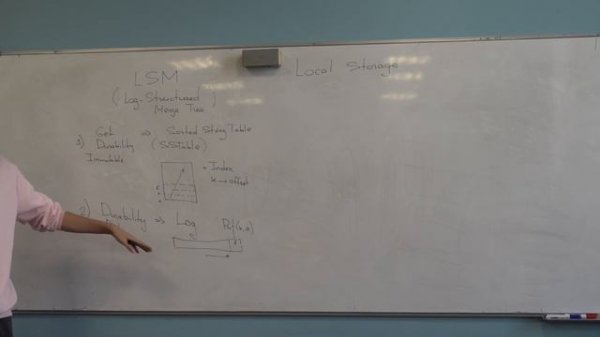 Local Storage
LSM
(Log-Structured)
Merge Tree
Get ⇒ Sorted String Table
Durability (SSTable)
Immutable
Index
k → offset
2) Durability ⇒ Log